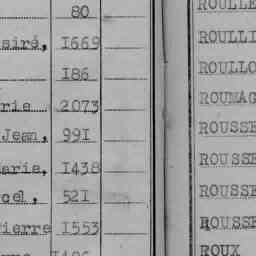 80
siré, 1669
186
rie 2073
Jean, 991
arie, 1438
cel, 521
ierre 1553
ROULLE
ROULLI
ROULLO
ROUMAG
ROUSSE
ROUSSE
ROUSSE
ROUSSE
ROUX